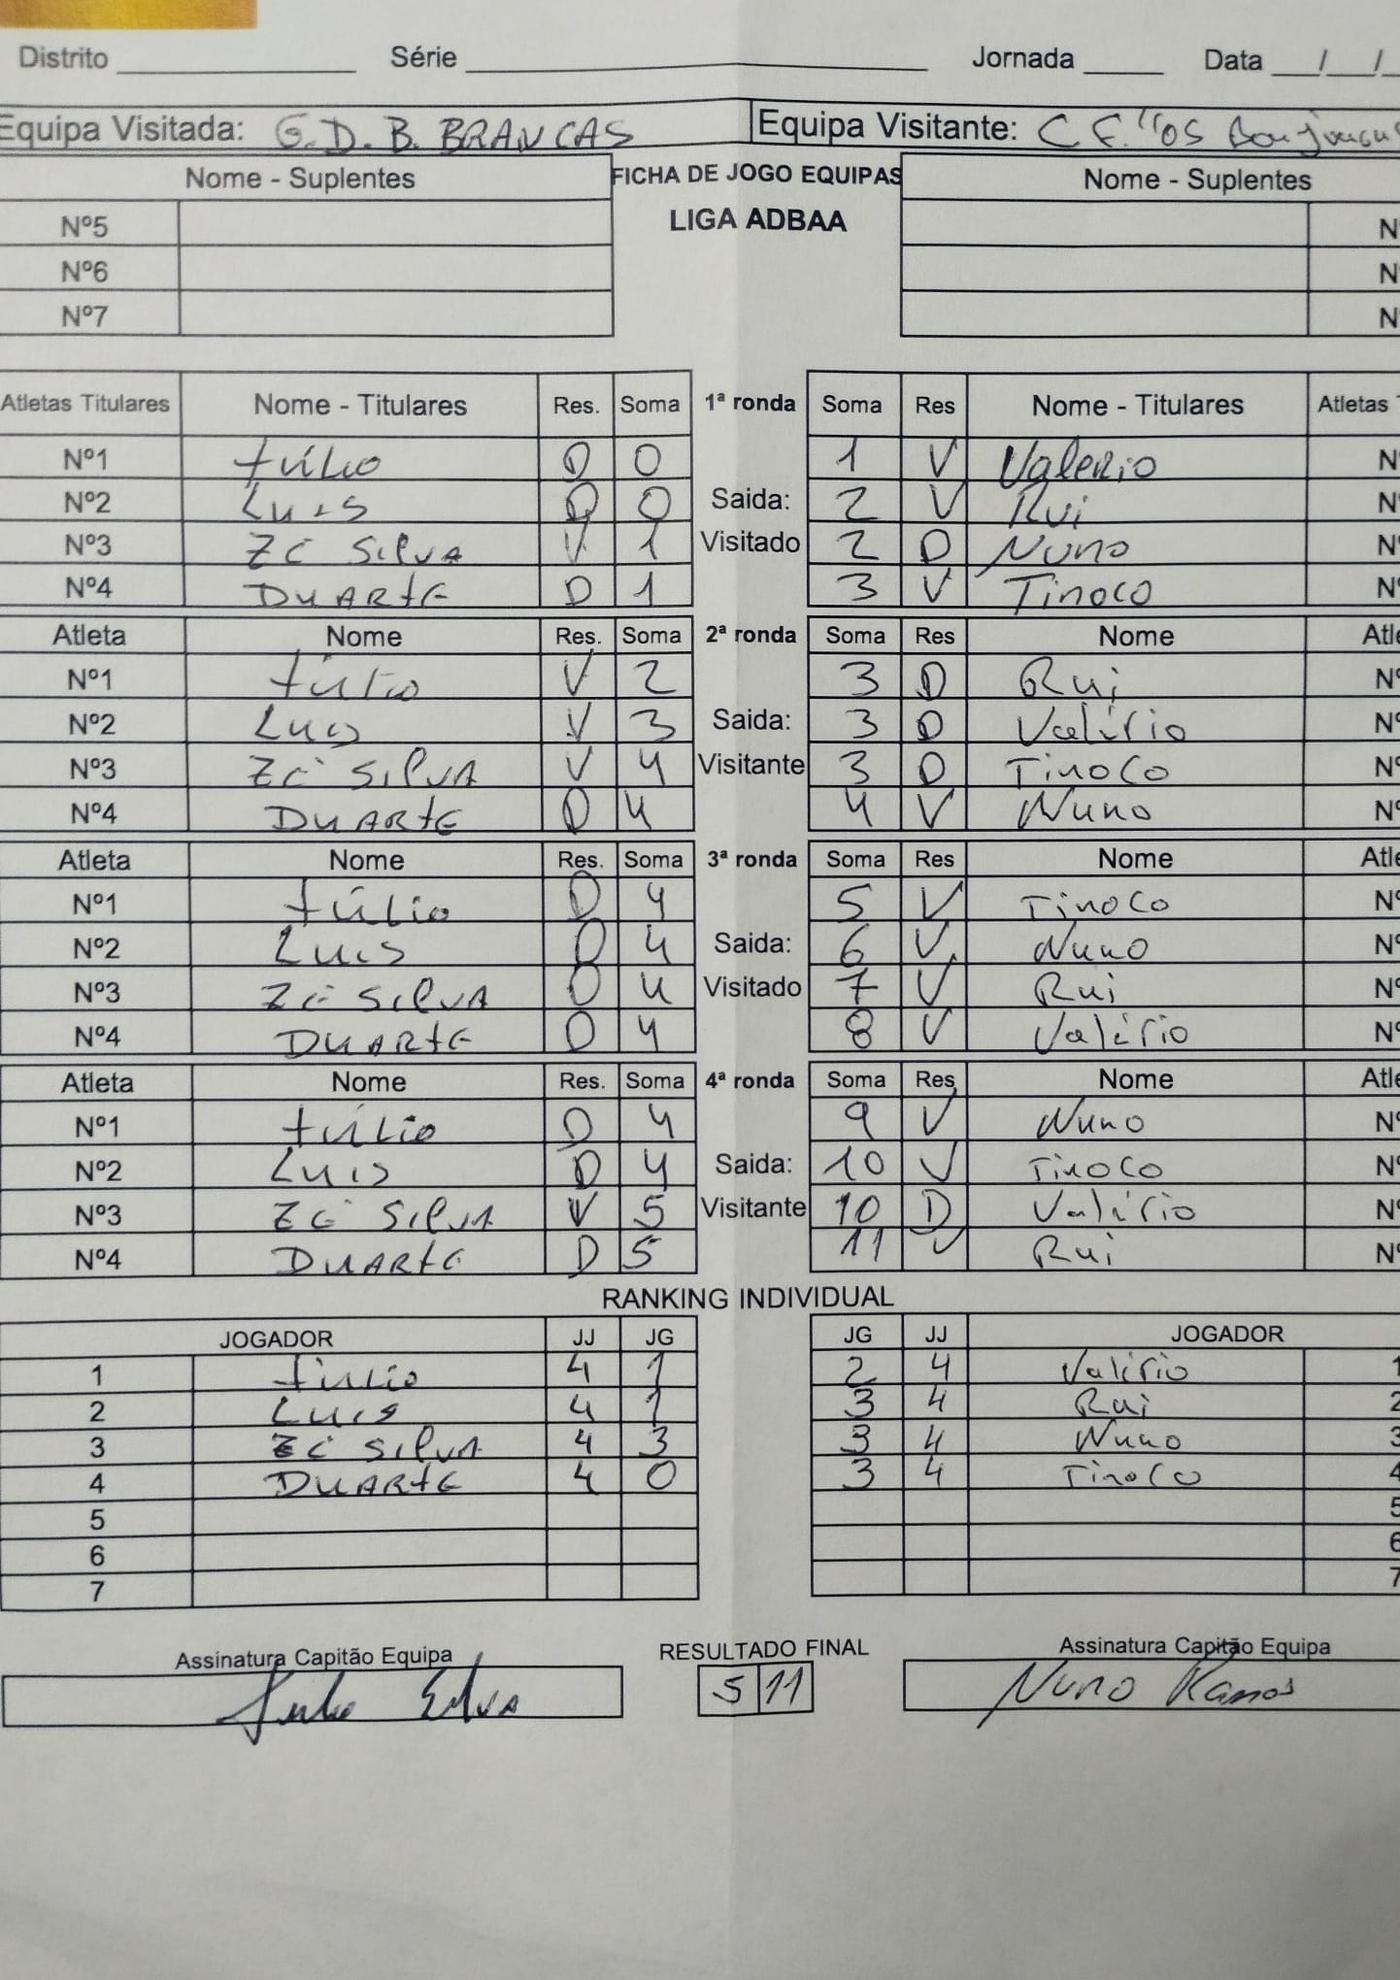 Distrito Série Jornada Data / /
Equipa Visitada: G.D.B. BRANCAS Equipa Visitante: C F. "OS
Nome - Suplentes FICHA DE JOGO EQUIPAS Nome - Suplentes
LIGA ADBAA
Nº5 N
Nº6 N
Nº7 N
Atletas Titulares Nome - Titulares Res. Soma 1ª ronda Soma Res Nome - Titulares Atletas
Nº1 túlio D 0 1 V Valerio N
Nº2 Luis D 0 Saida: 2 V Rui N
Nº3 Zé Silva V 1 Visitado 2 D Nuno N
Nº4 DUARTE D 1 3 V Tinoco N
Atleta Nome Res. Soma 2ª ronda Soma Res Nome Atle
Nº1 túlio V 2 3 D Rui Nº
Nº2 Luis V 3 Saida: 3 D Valério Nº
Nº3 Zé SilvA V 4 Visitante 3 D Tinoco Nº
Nº4 DUARTE D 4 4 V Nuno Nº
Atleta Nome Res. Soma 3ª ronda Soma Res Nome Atle
Nº1 túlio D 4 5 V Tinoco Nº
Nº2 Luis D 4 Saida: 6 V Nuno Nº
Nº3 Zé SilvA D 4 Visitado 7 V Rui Nº
Nº4 DUARTE D 4 8 V Valério Nº
Atleta Nome Res. Soma 4ª ronda Soma Res Nome Atle
Nº1 túlio D 4 9 V Nuno Nº
Nº2 Luis D 4 Saida: 10 V Tinoco Nº
Nº3 Zé SilvA V 5 Visitante 10 D Valério Nº
Nº4 DUARTE D 5 11 V Rui Nº
RANKING INDIVIDUAL
JOGADOR JJ JG JG JJ JOGADOR
1 túlio 4 1 2 4 Valério 1
2 Luis 4 1 3 4 Rui 2
3 Zé SilvA 4 3 3 4 Nuno 3
4 DUARTE 4 0 3 4 Tinoco 4
5 5
6 6
7 7
Assinatura Capitão Equipa RESULTADO FINAL Assinatura Capitão Equipa
5 11 Nuno Ramos